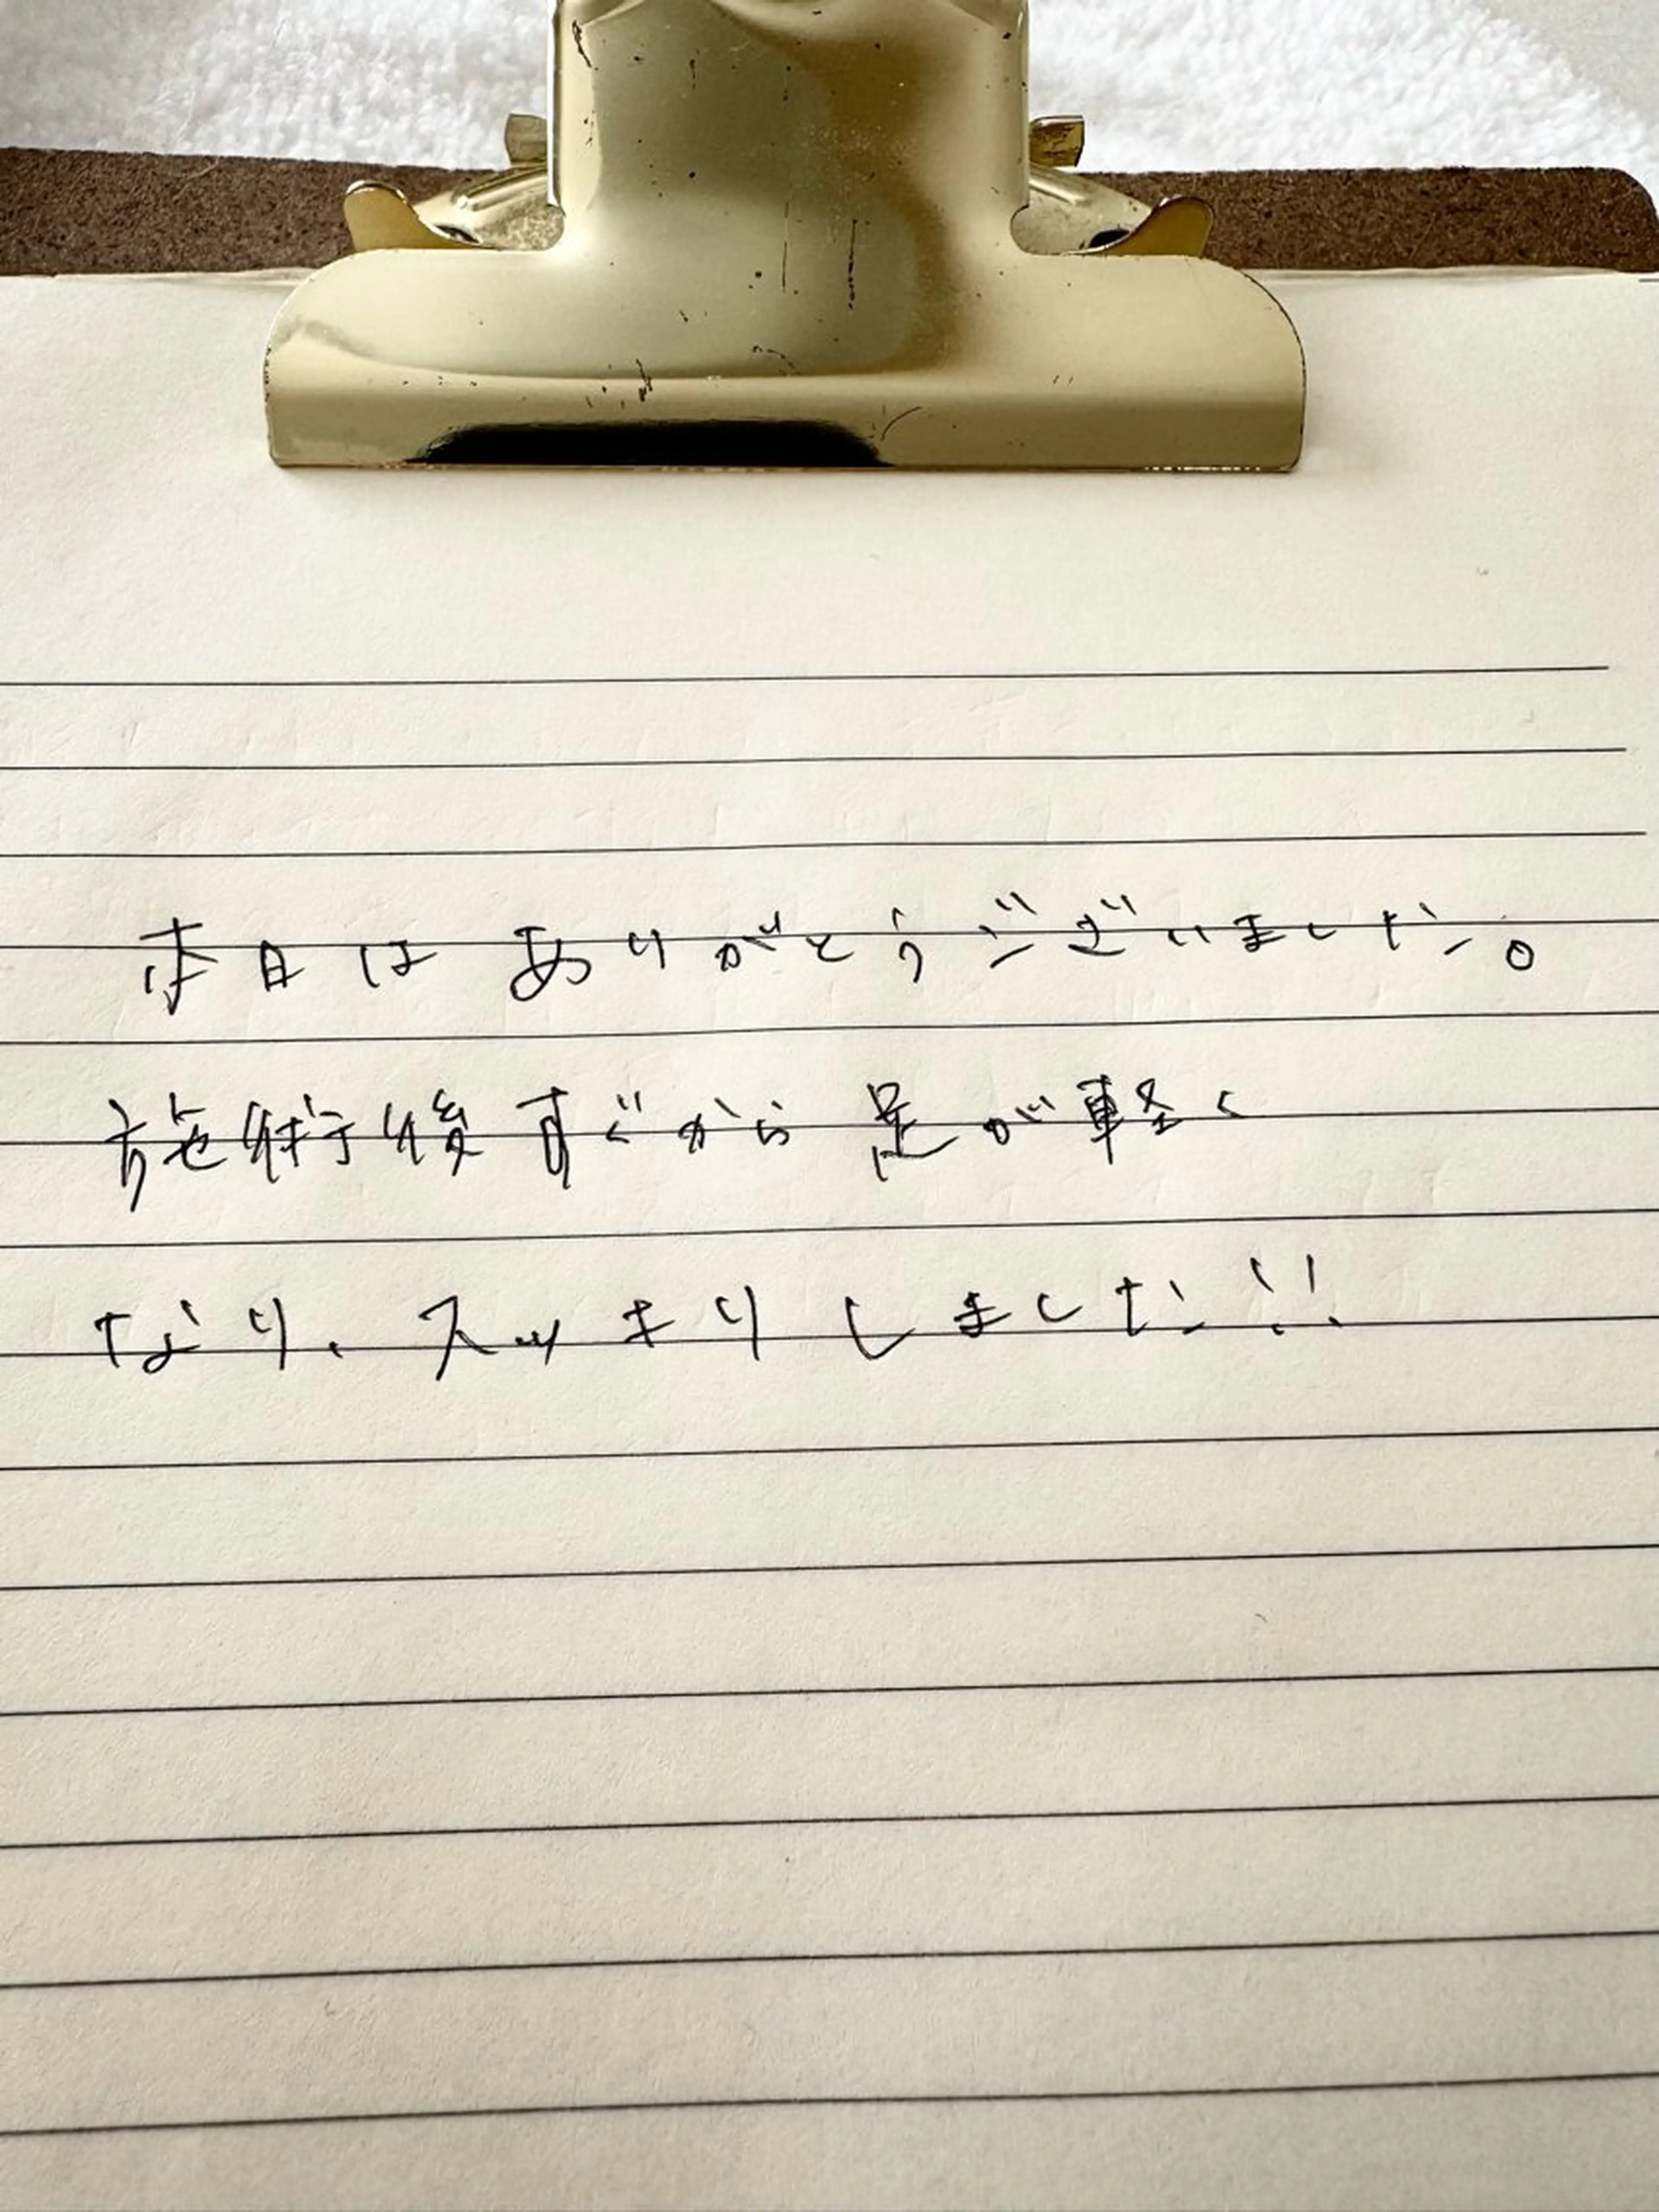 本日は ありがとうございました。
施術後すぐから 足が軽く
なり、スッキリしました!!